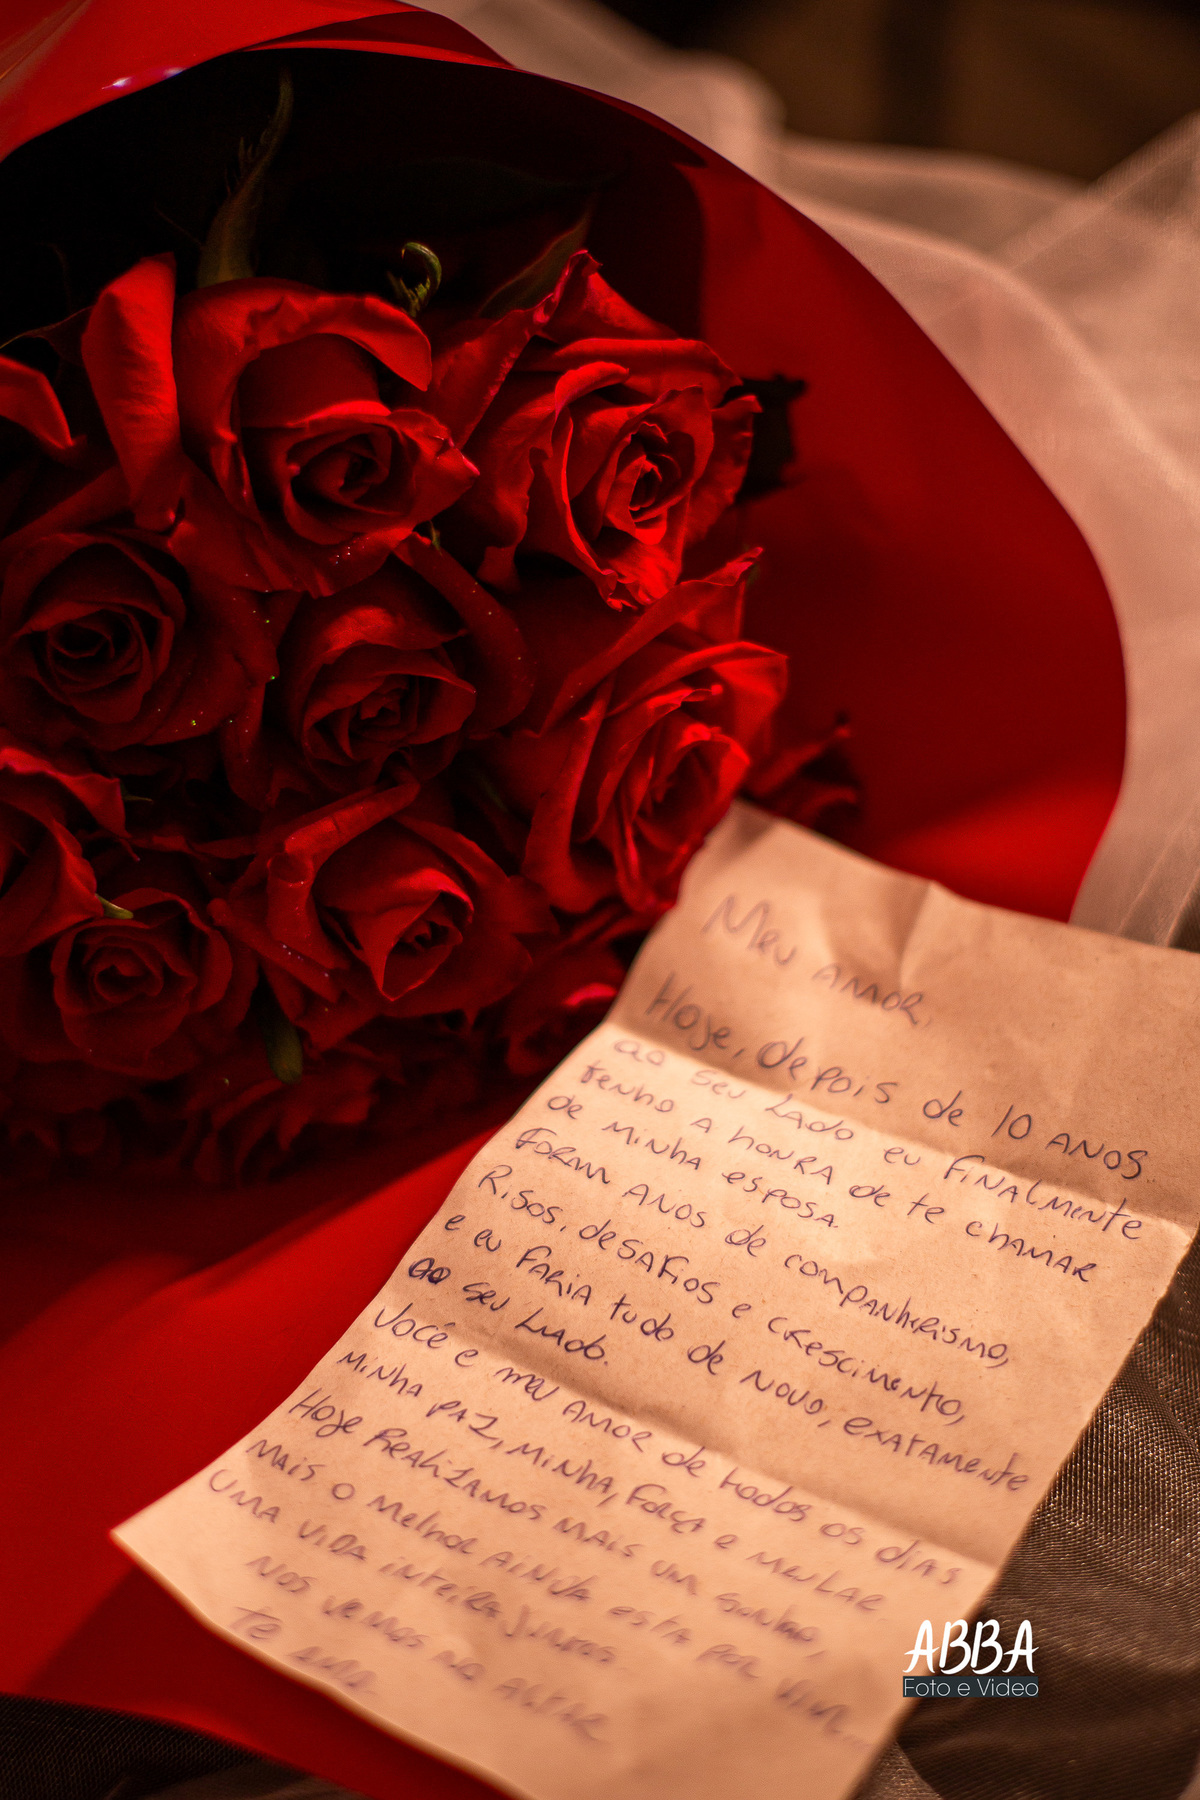 Meu amor,
Hoje, depois de 10 anos
ao seu lado eu finalmente
tenho a honra de te chamar
de minha esposa.
Foram anos de companherismo,
Risos, desafios e crescimento,
e eu faria tudo de novo, exatamente
ao seu lado.
Você e meu amor de todos os dias
minha paz, minha, força e meu lar
Hoje Realizamos mais um sonho,
mais o melhor ainda esta por vim...
uma vida inteira juntos
nos vemos no altar
Te amo.
ABBA
Foto e Video